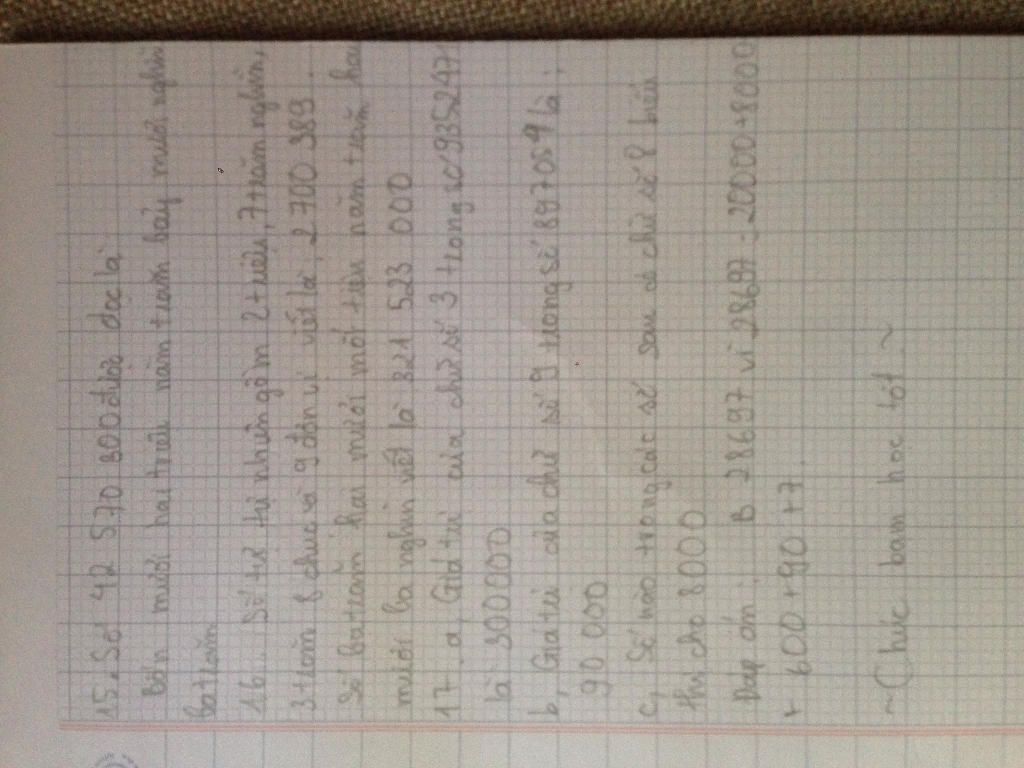 15. Số 42 570 300 được đọc là:
Bốn mươi hai triệu năm trăm bảy mươi nghìn
ba trăm
16. Số tự tự nhiên gồm 2 triệu, 7 trăm nghìn,
3 trăm 8 chục và 9 đơn vị viết là: 2 700 389.
Số ba trăm hai mươi mốt triệu năm trăm hai
mươi ba nghìn viết là 321 523 000
17. a, Giá trị của chữ số 3 trong số 9352471
là 300000
b, Giá trị của chữ số 9 trong số 8970591 là:
90 000
c, Số nào trong các số sau có chữ số 8 biểu
thị cho 8000
Đáp án: B 28697 vì 28697 = 20000+8000
+ 600+90+7.
~ Chúc bạm học tốt. ~